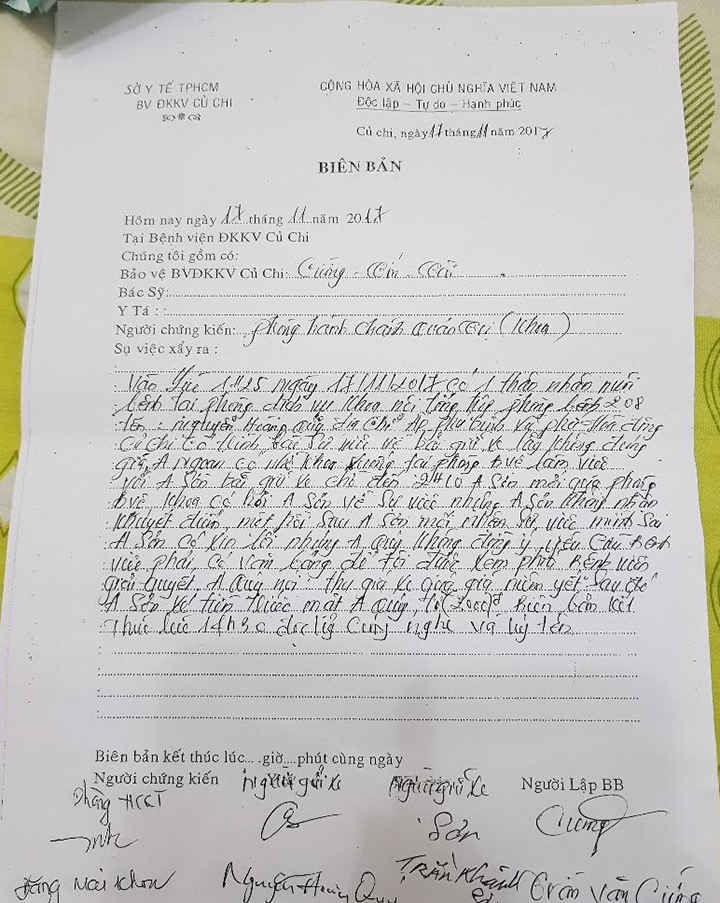 SỞ Y TẾ TPHCM
CỘNG HÒA XÃ HỘI CHỦ NGHĨA VIỆT NAM
BV ĐKKV CỦ CHI
Độc lập – Tự do – Hạnh phúc
Củ chi, ngày 17 tháng 11 năm 2017
BIÊN BẢN
Hôm nay ngày 17 tháng 11 năm 2017
Tại Bệnh viện ĐKKV Củ Chi
Chúng tôi gồm có:
Bảo vệ BVĐKKV Củ Chi: Cường -
Bác Sỹ:
Y Tá : :
Người chứng kiến: phòng hành chánh Quản trị (Khoa)
Sự việc xẩy ra :
Vào lúc 1H25 ngày 17/11/2017 có 1 thân nhân nuôi
bệnh tại phòng dịch vụ khoa nội tổng hợp phòng bệnh 208
tên : nguyễn Hoàng quý địa chỉ Ấp phú bình xã phú Hòa đông
Củ chi có trình báo sự việc về bãi giữ xe lấy không đúng
giá, A ngoan có nhờ khoa xuống tại phòng bvệ làm việc
với A Sơn bãi giữ xe chỉ đến 2H10 A Sơn mới qua phòng
bvệ, khoa có hỏi A Sơn về sự việc nhưng A Sơn không nhận
khuyết điểm, một hồi sau A Sơn mới nhận sự việc mình sai
A Sơn có xin lỗi nhưng A quý không đồng ý yêu cầu bệnh
viện phải có văn bảng để tôi được xem phía Bệnh viện
giải quyết. A Quý nói thu giá xe đúng giá niêm yết sau đó
A Sơn trả tiền trước mặt A quý, (2000)đ Biên bản kết
thúc lúc 14h30 đọc lại cùng nghe và ký tên
Biên bản kết thúc lúc....giờ....phút cùng ngày
Người chứng kiến Người gửi xe Người giữ xe Người Lập BB
Phòng HCQT
Sơn Cường
Đặng Mai Khoa Nguyễn Hoàng Quý Trần Khánh Trần Văn Cường